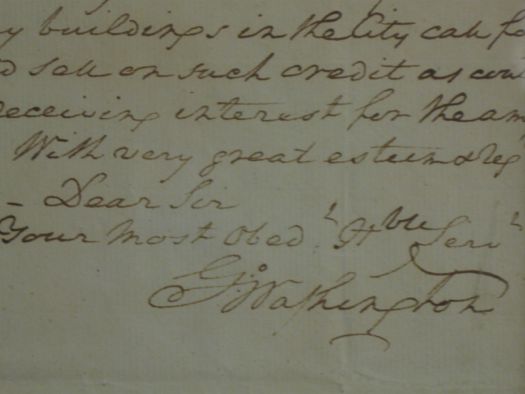 y buildings in the City call fo
d sell on such credit as cou
receiving interest for the am
With very great esteem & reg
- Dear Sir
Your Most Obed.t Hble Servt
Go Washington